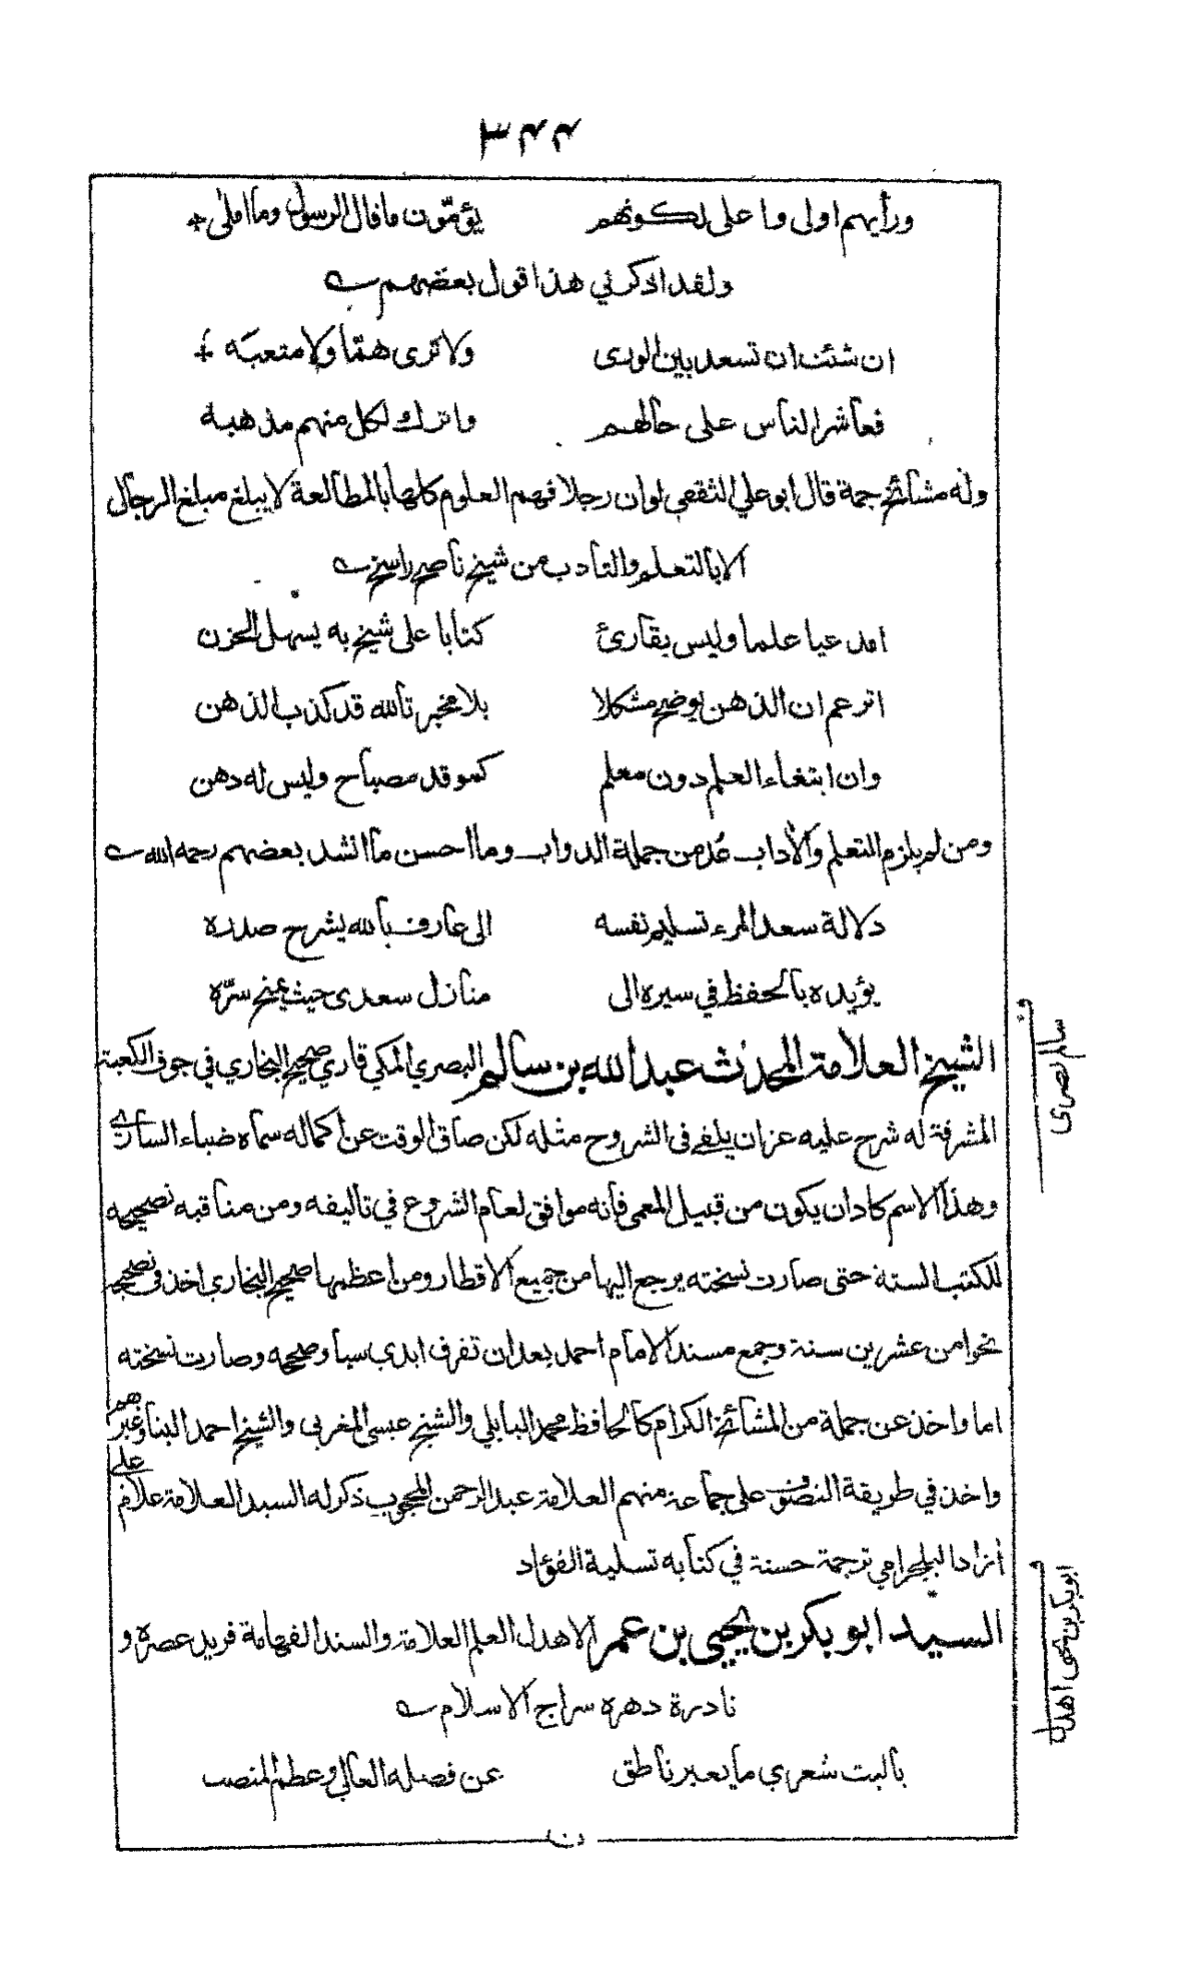 ورأيهم اولى وما على لكونهم يؤمّون ما قال الرسول وما املى
ولقد اذكرني هذا قول بعضهم
ان شئت ان تسعد بين الورى ولا ترى همّا ولا متعبة
فعاشر الناس على حالهم واترك لكل منهم مذهبه
وله مشائخ جمة قال ابو علي الثقفي لو ان رجلا فهم العلوم كلها بالمطالعة لا يبلغ مبلغ الرجال
الا بالتعلم والتادب من شيخ ناصح راسخ
امدعيا علما وليس بقارئ كتابا على شيخ به يسهل الحزن
اتزعم ان الذهن يوضح مشكلا بلا مخبر تالله قد كذب الذهن
وان ابتغاء العلم دون معلم كموقد مصباح وليس له دهن
ومن لم يلزم التعلم والأداب عُد من جملة الدواب وما احسن ما انشد بعضهم رحمه الله
دلالة سعد المرء تسليم نفسه الى عارف بالله يشرح صدره
يؤيده بالحفظ في سيره الى منازل سعدى حيث يمنح سرّه
الشيخ العلامة المحدث عبد الله بن سالم البصري المكي قاري صحيح البخاري في جوف الكعبة
المشرفة له شرح عليه عز ان يلفى في الشروح مثله لكن ضاق الوقت عن اكماله سماه ضياء الساري
وهذا الاسم كاد ان يكون من قبيل المعمى فانه موافق لعام الشروع في تاليفه ومن مناقبه تصحيحه
للكتب الستة حتى صارت نسخته يرجع اليها من جميع الاقطار ومن اعظمها صحيح البخاري اخذ في تصحيحه
نحوا من عشرين سنة وجمع مسند الامام احمد بعد ان تفرق ايدي سبا وصححه وصارت نسخته
اما واخذ عن جملة من المشائخ الكرام كالحافظ محمد البابلي والشيخ عيسى المغربي والشيخ احمد البنا وغيرهم
واخذ في طريقة التصوف على جماعة منهم العلامة عبد الرحمن المحجوب ذكر له السيد العلامة غلام على
أزاد البلجرامي ترجمة حسنة في كتابه تسلية الفؤاد
السيد ابو بكر بن يحيى بن عمر الاهدل العلم العلامة والسند الفهامة فريد عصره و
نادرة دهره سراج الاسلام
ياليت شعري ما يعبر ناطق عن فضله العالي وعظم المنصب
سالم بصرى
ابو بكر بن يحيى اهدل